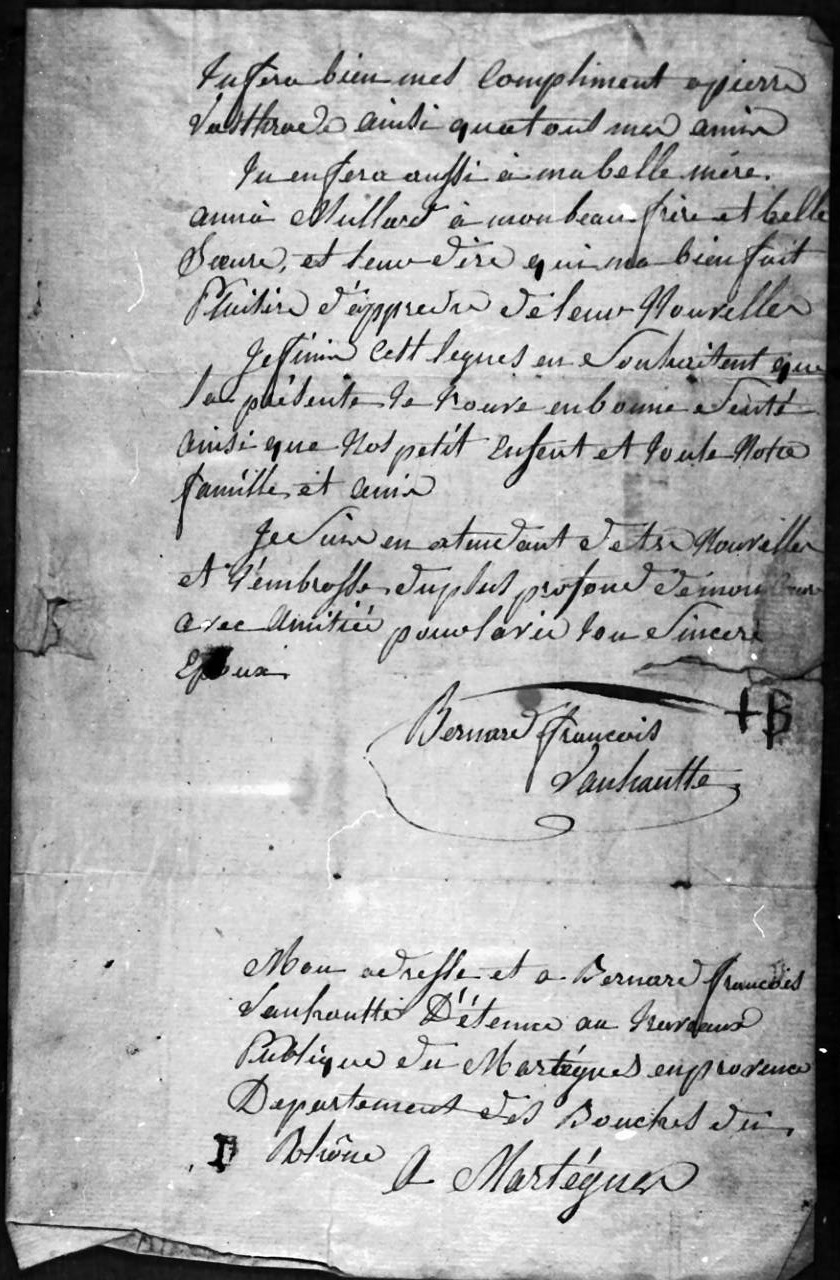 tu fera bien mes Compliment a pierre
Vasthraede ainsi qua tous mes amis
Tu en fera aussi à ma belle mére.
anna Mullard à mon beau frére et belle
Sœure, et leur dire qui ma bien fait
Plaisire d'appredre de leur Nouvelles
Je finis cest legnes en Souhaitent que
la présente te trouve en bonne Senté
ainsi que Nos petit Enfent et toute Notre
famille et amis
Je Suis en atendant de tes Nouvelles
et t'embrasse du plus profond de mon Cœur
avec Amitiée pour la vie ton Sincere
Epoux
Bernard francois + B
Vanhoutte
Mon adresse et a Bernard francois
Vanhoutte Détenue au travaux
Publique du Martégues en provence
Departement des Bouches du
D Rhône A Martégues